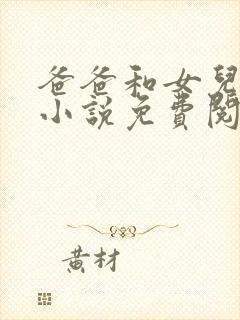 爸爸和女兒
小說免費閱
黃材